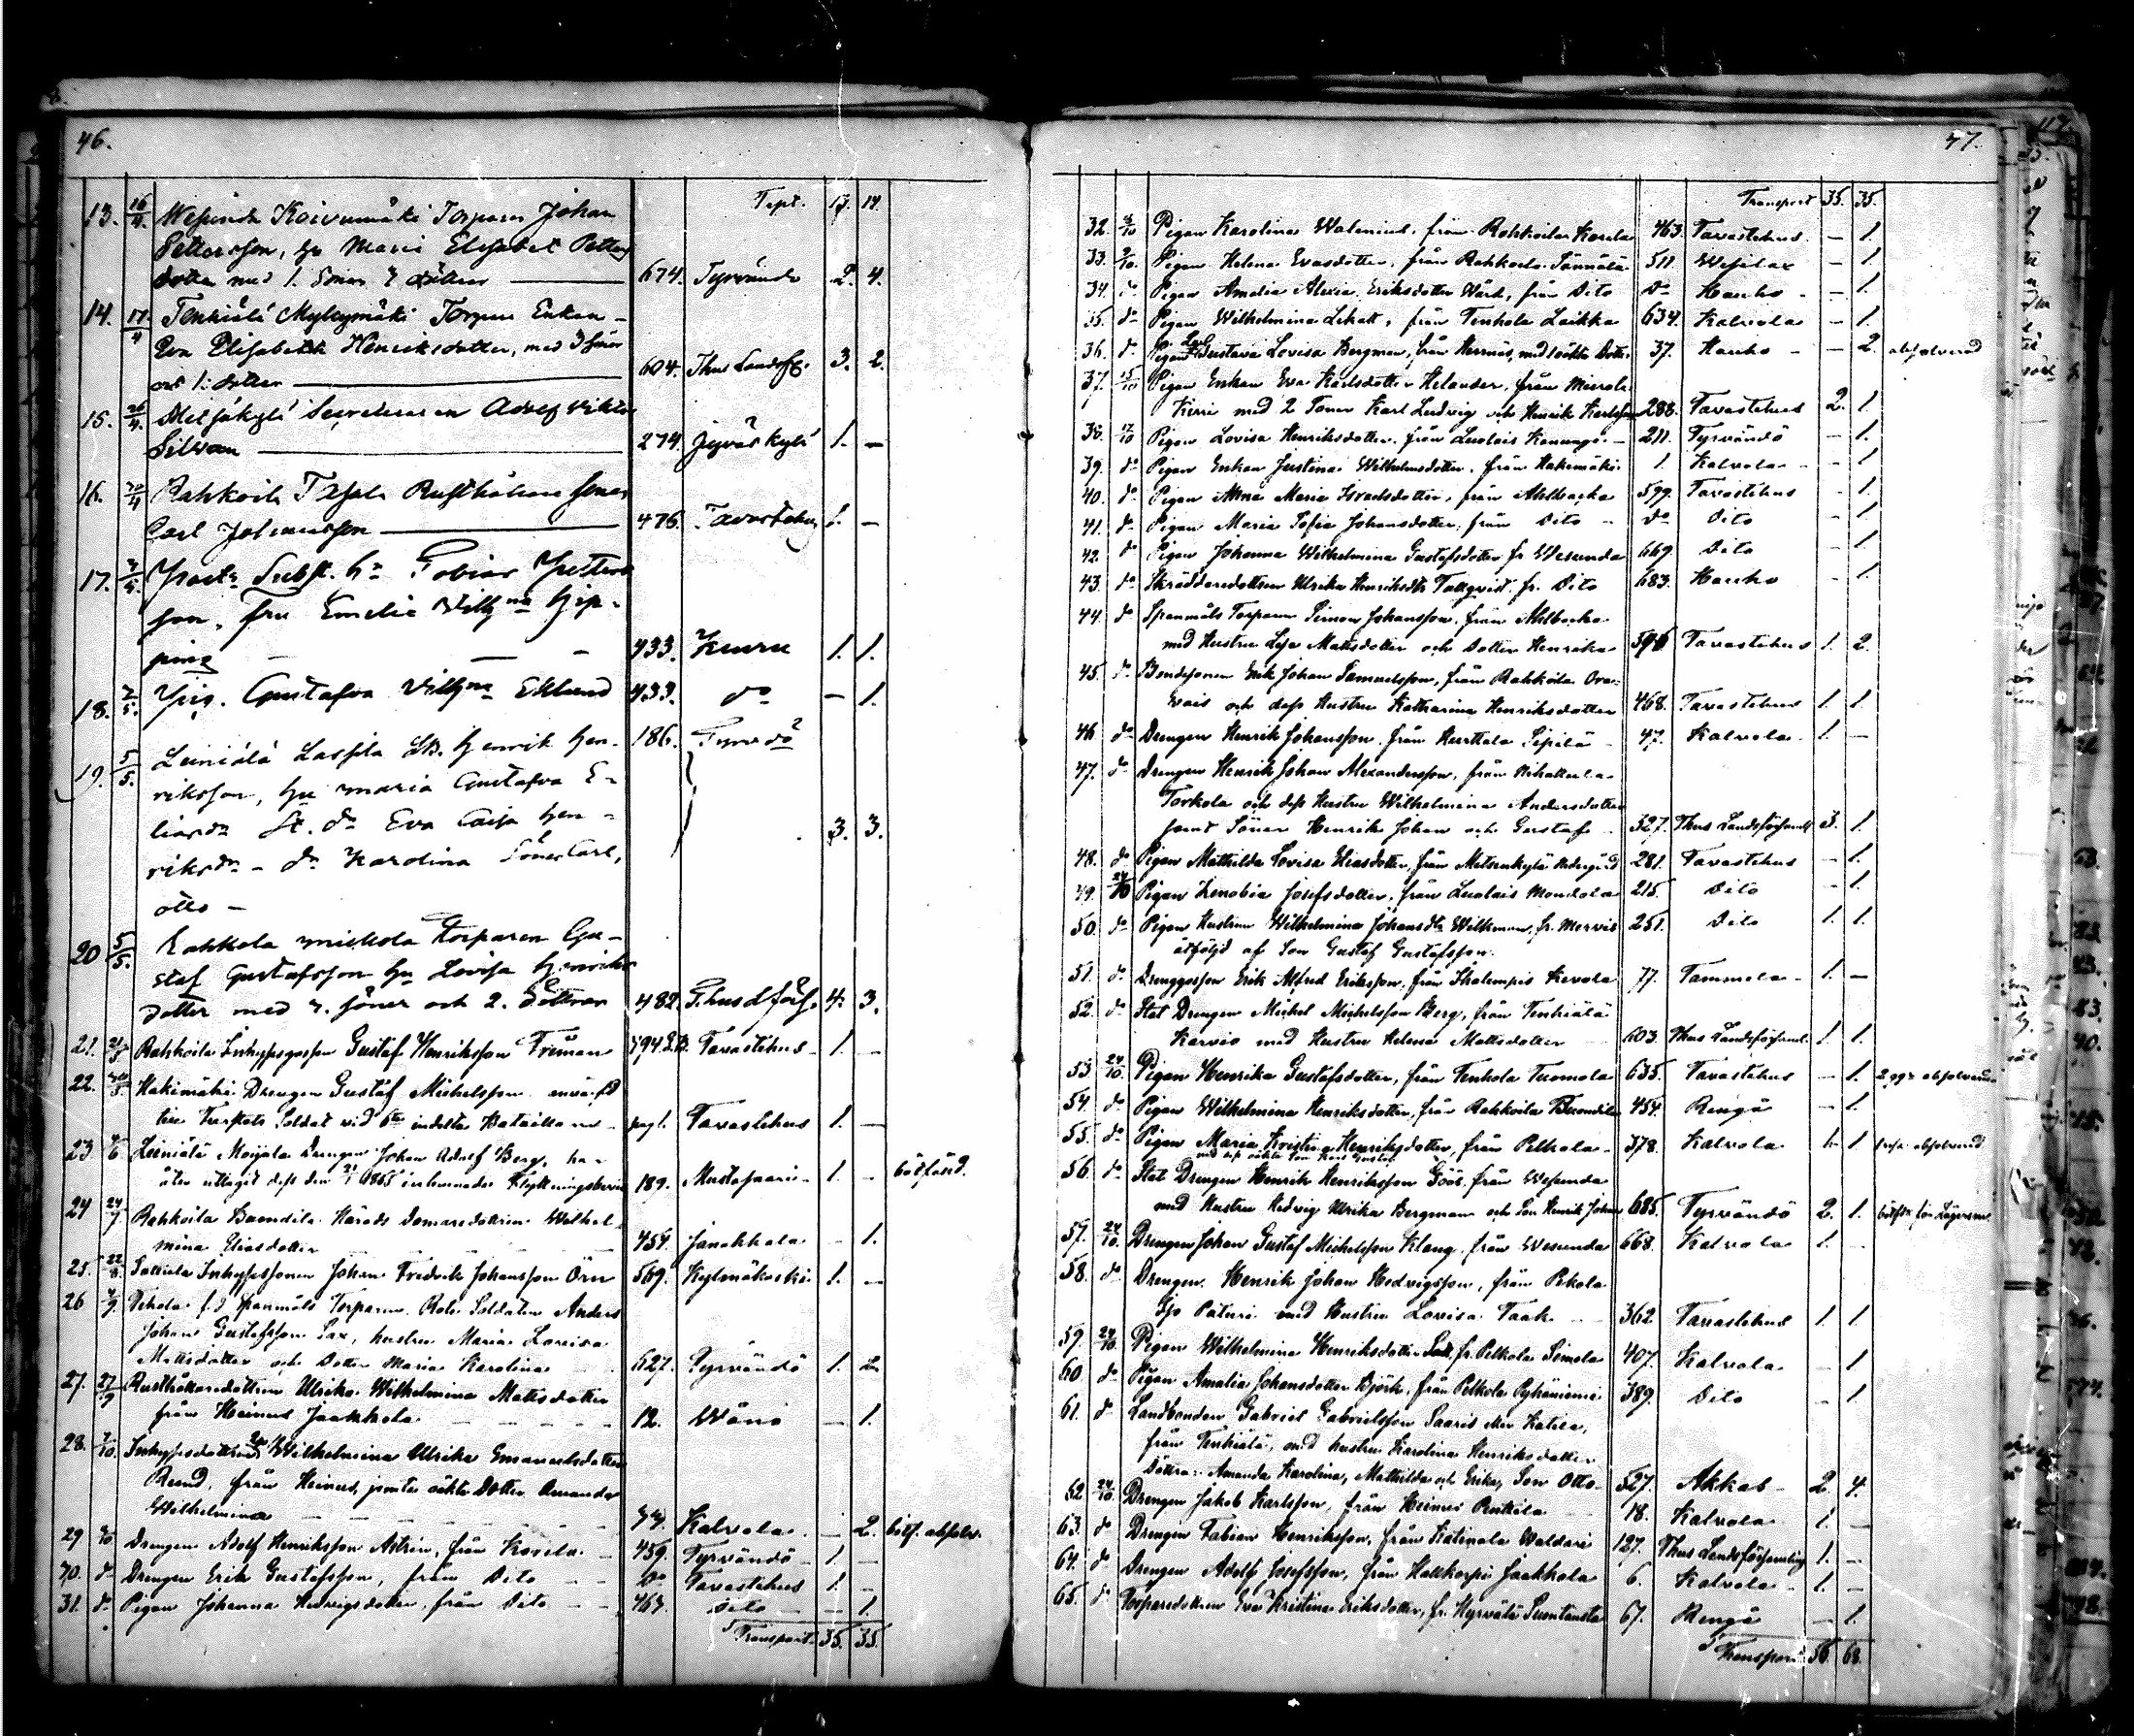 46.
Trpt. 17. 14.
13. 16/4. Wesunda Koivumäki Torparen Johan
Pettersson, hu Maria Elisabet Petters
dotter med 1. Son 3 döttrar 674. Tyrvändö 2. 4.
14. 17/4 Tenhiälä Myllymäki Torpare Enkan
Eva Elisabeth Henriksdotter, med 3 söner
och 1. dotter 604. Thus Landsfg. 3. 2.
15. 26/4. Secreteraren Adolf Viktor
Silvan 274. Jyväskylä 1. —
16. 30/4 Rahkoila Rusthållare sonen
Carl Johansson 476. Tavastehus 1. —
17. 2/5. Past. Subst. Hr Tobias
son, fru Emelie Vilhna
433. Keuru 1. 1.
18. 2/5. Pig. Gustafva Vilhna Eklund 433. do — 1.
19. 5/5. Leiniälä Lassila LB. Henrik Hen-
riksson, hu Maria Gustafva E-
liasdr dr Eva Caisa Hen-
riksdr - dr Karolina Söner Carl,
Otto — 186. Tyrvdö 3. 3.
20 5/5. Rahkola Torparen Gu-
staf Gustafsson hu Lovisa Henriks
dotter med 3. söner och 2. döttrar 482. T.hus Lförs. 4. 3.
21. 21/5 Rahkoila Inhysesgosse Gustaf Henriksson Friman 494 Tavastehus 1. —
22. 30/5. Hakimäki Drengen Gustaf Michelsson
Soldat vid 6te indelta pag1. Tavastehus 1. —
23 Leiniälä Moijala Drengen Johan Adolf Berg, ha-
uttagit dess den 21/1 1865 inlemnade Flyttningsbevis 189. Mustasaari 1. — bötfäld.
24 24/7 Rahkoila Buendila Härads Domaredottren Wilhel-
mina Eliasdotter 454 Janakkala — 1.
25. 22/8. Inhysessonen Johan Fredrik Johansson Örn 569. Kylmäkoski 1. —
26 Pekola f.d Spanmåls Torparen Rote Soldaten Anders
Johan Gustafsson Sax, hustru Maria Lovisa
Mattsdotter och Dotter Maria Karolina 527. Tyrvändö 1. 2
27. 27/9 Rusthållaredottren Ulrika Wilhelmina Mattsdotter
från Heinus Jaakkola 12. Wånå — 1.
28. 2/10. Inhysesdottren Wilhelmina Ulrika Emanuelsdotter
Rund, från Heinus, jemte oäkta Dotter Amanda
Wilhelmina 44. Kalvola — 2. bötf. absolv.
29 Drengen Adolf Henriksson Astrén, från Karila 459. Tyrvändö 1. —
30. do Drengen Erik Gustafsson, från Dito do Tavastehus 1. —
31. do Pigan Johanna Hedvigsdotter, från Dito 464. Dito — 1.
Transport 35. 35.
47.
Transport 35. 35.
32. Pigan Karolina Walenius, från Rahkoila Karila 463. Tavastehus — 1.
33. 9/10. Pigan Helena Evasdotter, från Rahkoila Sännälä 511 Wesilax — 1.
34. do Pigan Amalia Alexia Eriksdotter Wård, från Dito do Hauho — 1.
35. do Pigan Wilhelmina Lekatt, från Tenhola Laikka 634. Kalvola — 1.
36. do Pigan Gustava Lovisa Bergman, från Hernäs, med 1 oäkta Dotter 37. Hauho — 2. absolverad
37. 15/10 Pigan Enkan Eva Karlsdotter Helander, från Mierola
Kirri med 2 Söner Karl Ludvig och Henrik Karlsson 288. Tavastehus 2. 1.
38. 17/10 Pigan Lovisa Henriksdotter, från Luolais 211. Tyrvändö — 1.
39. do Pigan Enkan Justina Wilhelmsdotter, från Hakimäki 1. Kalvola — 1.
40. do Pigan Anna Maria Israelsdotter, från Ahlbacka 599. Tavastehus — 1.
41. do Pigan Maria Sofia Johansdotter, från Dito do Dito — 1.
42. do Pigan Johanna Wilhelmina Gustafsdotter fr Wesunda 669. Dito — 1.
43. do Skräddaredottren Ulrika Henriksdtr Tallqvist fr. Dito 683. Hauho — 1.
44. do Spanmåls Torparen Simon Johansson, från Ahlbacka
med Hustru Lisa Mattsdotter och Dotter Henrika 596 Tavastehus 1. 2.
45. do Bondesonen Erik Johan Samuelsson, från Rahkoila Ora-
vais och dess Hustru Katharina Henriksdotter 468. Tavastehus 1. 1.
46. do Drengen Henrik Johansson, från Hurttala Sipilä 47. Kalvola 1. —
47. do Drengen Henrik Johan Alexandersson, från Hihattula
Torkola och dess Hustru Wilhelmina Andersdotter
samt Söner Henrik Johan och Gustaf 327. Thus Landsförsaml. 3. 1.
48. do Pigan Mathilda Lovisa Eliasdotter, från Metsenkylä Nedergård 281. Tavastehus — 1.
49. 24/10 Pigan Zenobia Josefsdotter, från Luolais Mondola 215. Dito — 1.
50. do Pigan Hustrun Wilhelmina Johansdtr Wilkman, fr. Mervis 251. Dito 1. 1.
åtföljd af Son Gustaf Gustafsson.
51. do Drenggossen Erik Alfred Eriksson, från Kevola 77. Tammela 1. —
52. do Stat Drengen Michel Michelsson Berg, från Tenhiälä
Karvio med Hustru Helena Mattsdotter 603. Thus Landsförsaml. 1. 1.
53 24/10. Pigan Henrika Gustafsdotter, från Tenhola Tuomola 635. Tavastehus — 1. 2 ggr absolverad
54. do Pigan Wilhelmina Henriksdotter, från Rahkoila Buendila 454. Rengå — 1.
55. do Pigan Maria Kristina Henriksdotter, från Pelkola 378. Kalvola 1. 1 absolverad
med oäkta Son Karl Gustaf
56. do Stat Drengen Henrik Henriksson Göös från Wesunda
med Hustru Hedvig Ulrika Bergman och Son Henrik Johan 685. Tyrvändö 2. 1. bötfd. för Lägersmål
57. 24/10. Drengen Johan Gustaf Michelsson Klang, från Wesunda 668. Kalvola 1. —
58. do Drengen Henrik Johan Hedvigsson, från Pekola
Paturi med Hustru Lovisa Taak 362. Tavastehus 1. 1
59. 24/10. Pigan Wilhelmina Henriksdotter fr. Pelkola Simola 407. Kalvola — 1
60. do Pigan Amalia Johansdotter Björk, från Pelkola Pyhäniemi 389. Dito — 1.
61. do Landbonden Gabriel Gabrielsson Saaris eller Katila,
från Tenhiälä, med hustru Karolina Henriksdotter
Döttrar: Amanda Karolina, Mathilda och Erika, Son Otto 527. Akkas 2. 4.
62. 24/10. Drengen Jakob Karlsson, från Heinus Penkila 18. Kalvola 1. —
63. do Drengen Fabian Henriksson, från Katinala Waldari 127. Thus Landsförsamling 1. —
64. do Drengen Adolf Josefsson, från Hattkorpi Jaakkola 6. Kalvola 1. —
65. do Torparedottren Eva Kristina Eriksdotter, fr. Hyrvälä Suontausta 67. Rengå — 1.
Transport 56. 68.